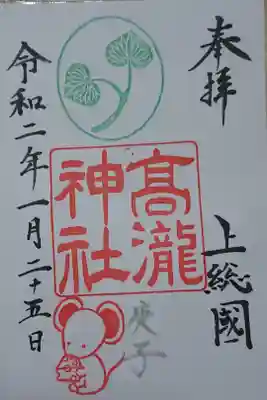 奉拝
上総國
高瀧
神社
庚子
令和二年一月二十五日